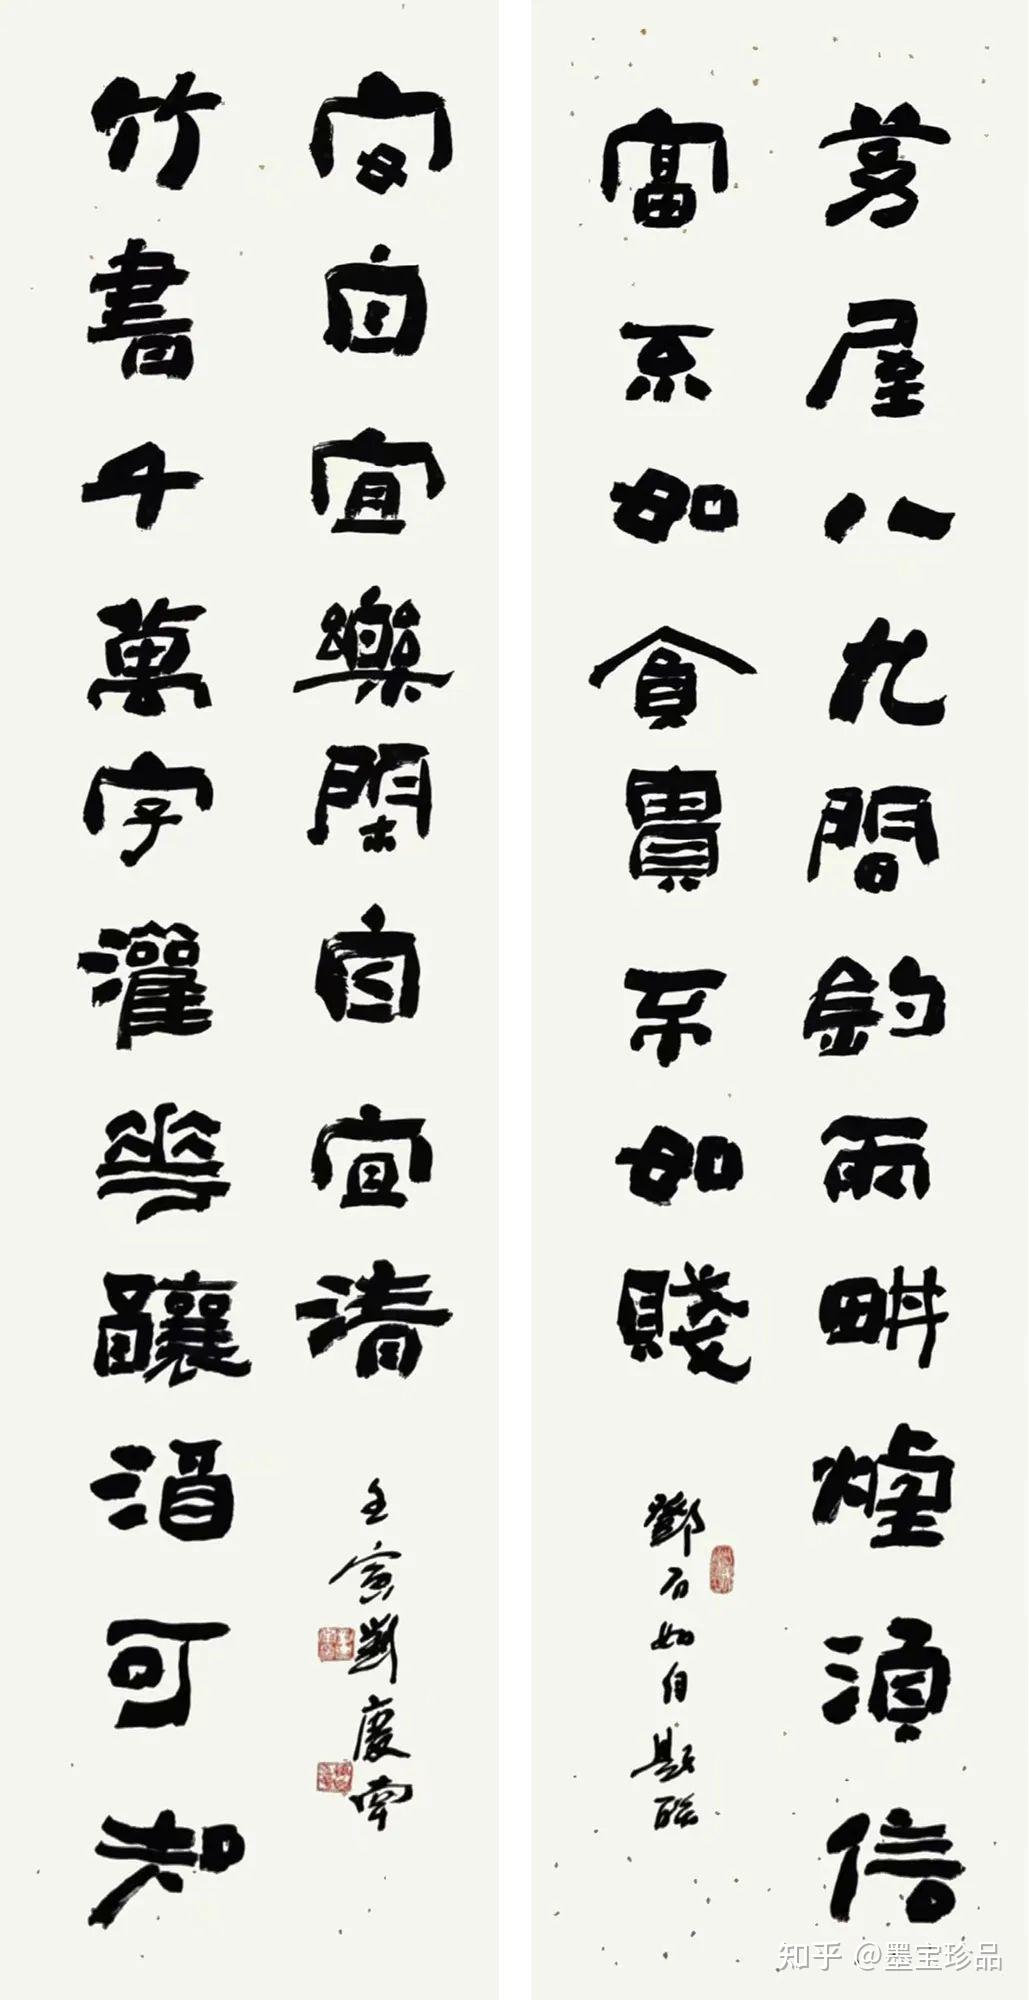 茅屋八九間釣雨畊煙湏信
富不如貧貴不如賤
鄧石如自題聯
竹書千萬字灌華釀酒可知
安自宜樂閑自宜清
壬寅劉慶
知乎 @墨宝珍品